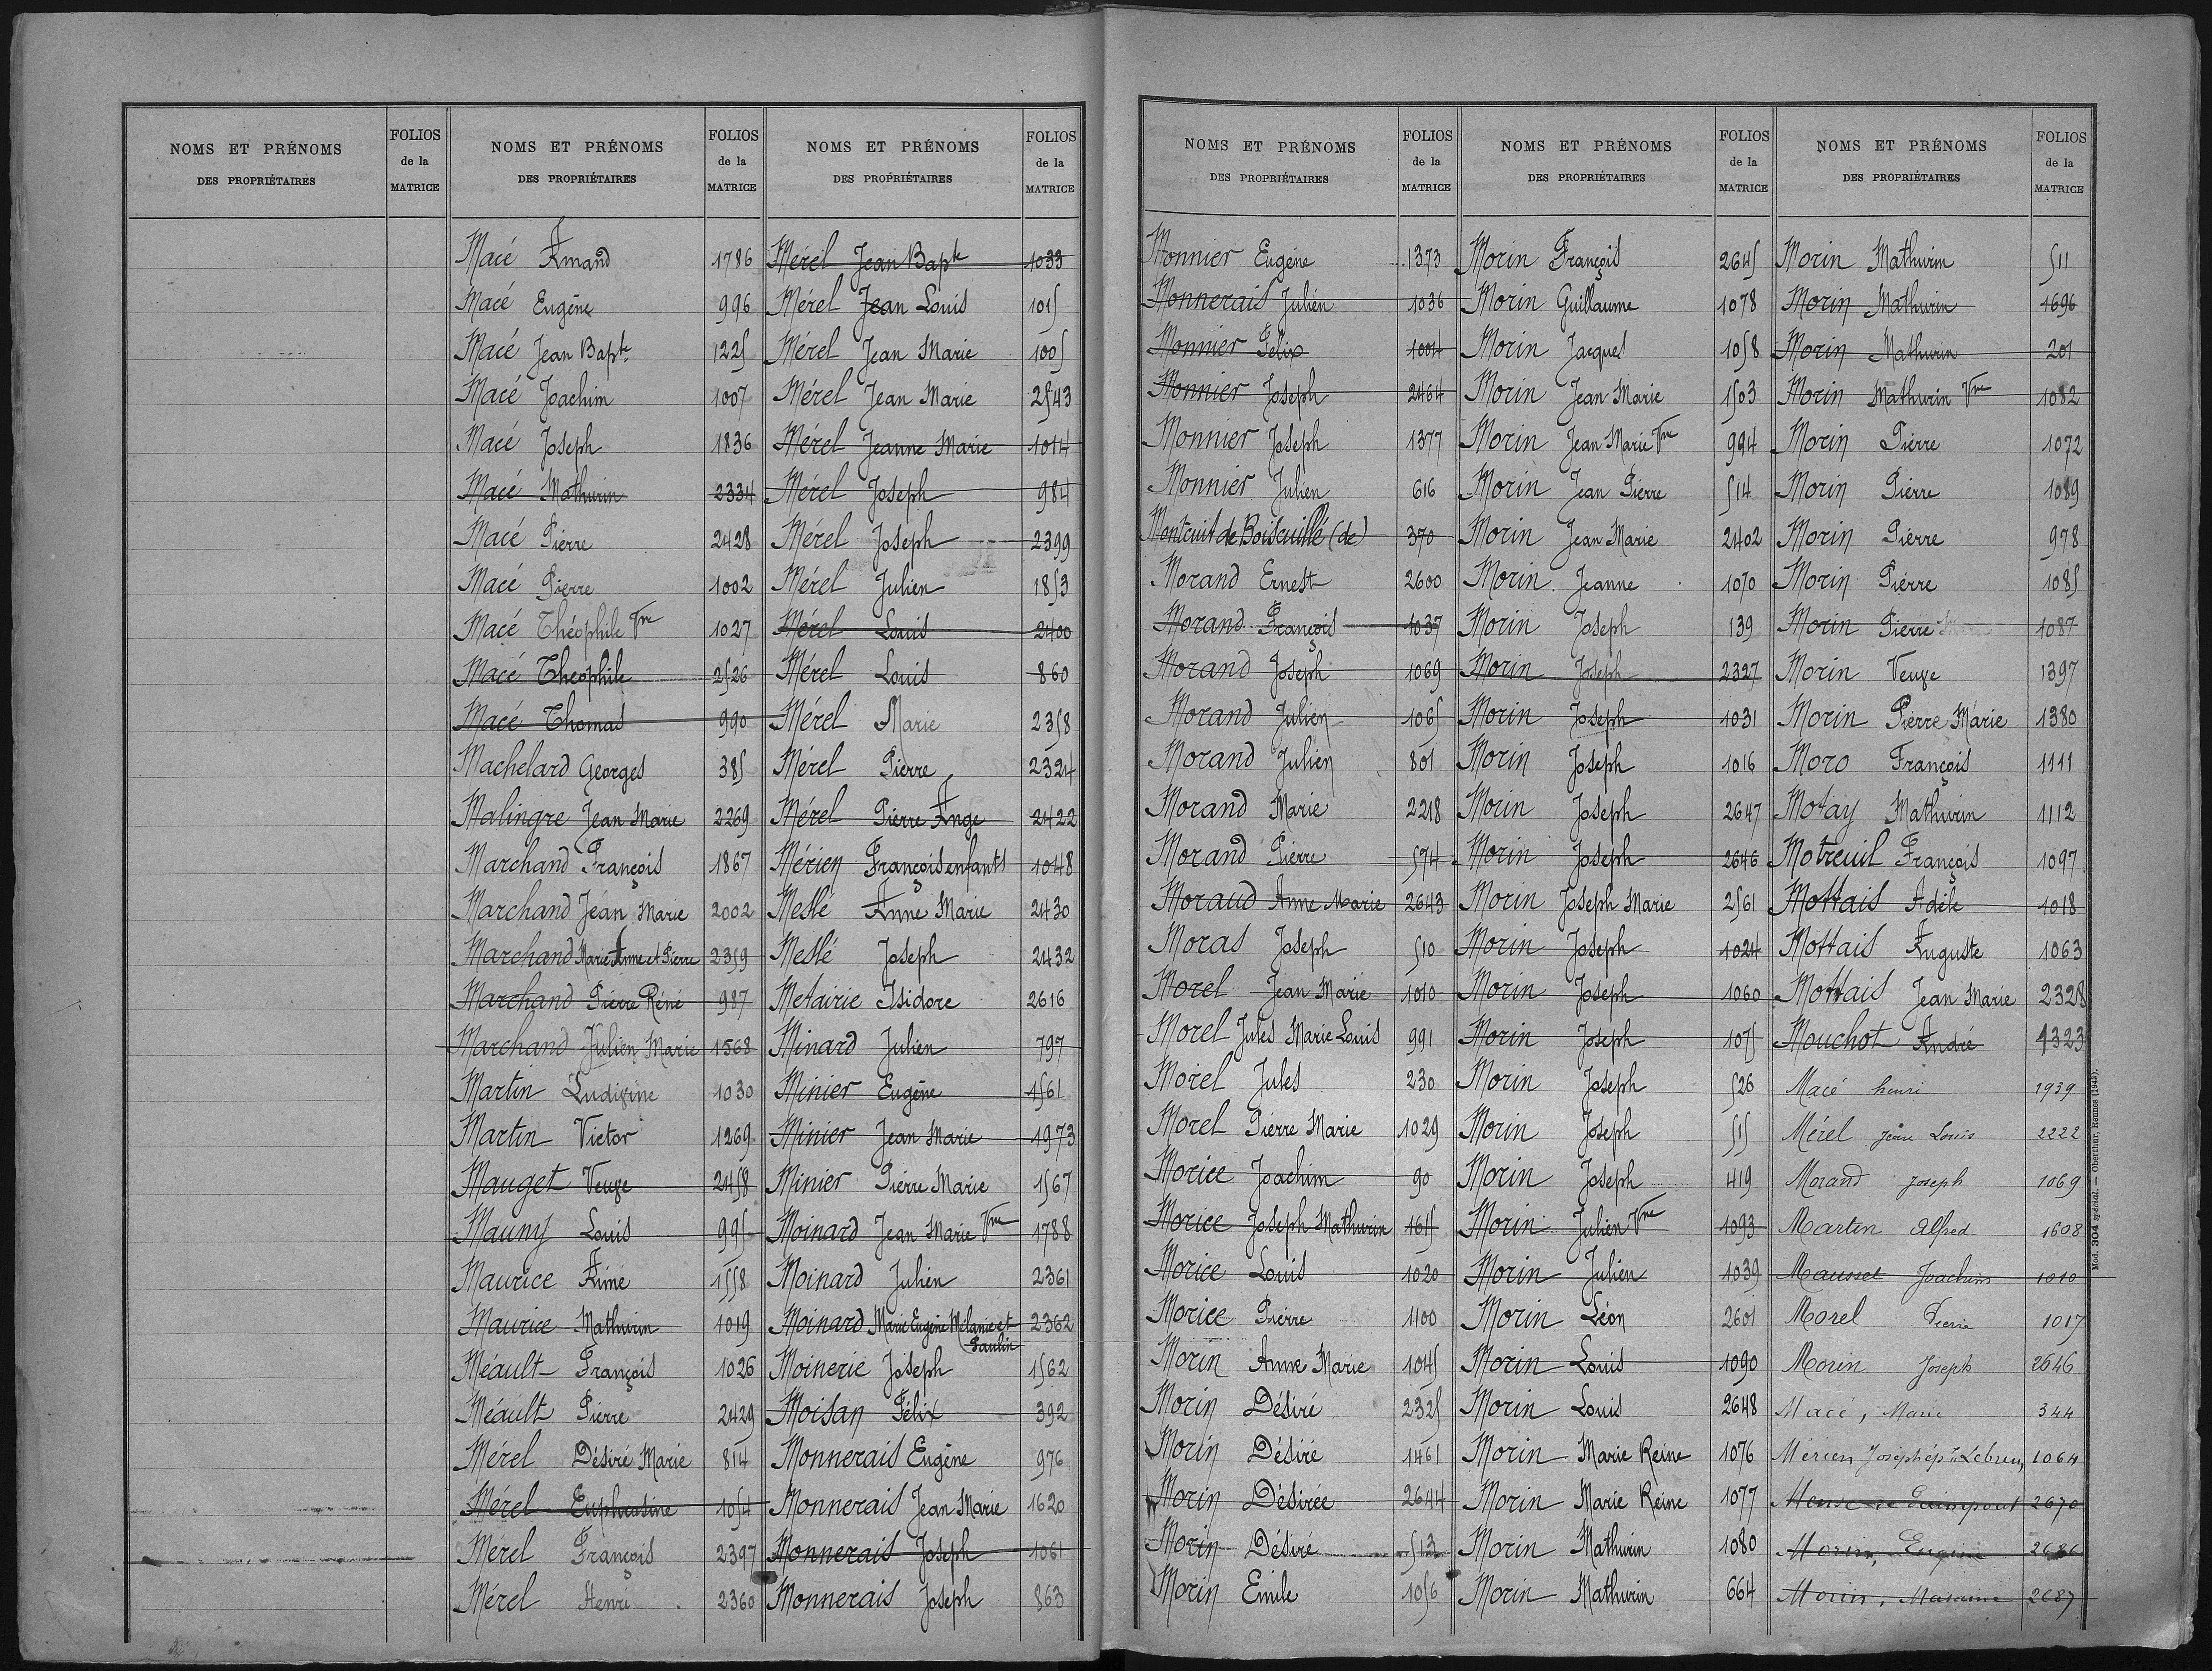 NOMS ET PRÉNOMS
DES PROPRIÉTAIRES
FOLIOS
de la
MATRICE
NOMS ET PRÉNOMS
DES PROPRIÉTAIRES
FOLIOS
de la
MATRICE
Macé Amand 1786
Macé Eugène 996
Macé Jean Bapte 1225
Macé Joachim 1007
Macé Joseph 1836
Macé Mathurin 2334
Macé Pierre 2428
Macé Pierre 1002
Macé Théophile Vve 1027
Macé Théophile 2526
Macé Thomas 990
Machelard Georges 385
Malingre Jean Marie 2269
Marchand François 1867
Marchand Jean Marie 2002
Marchand Marie Anne et Pierre 2359
Marchand Pierre Réné 987
Marchand Julien Marie 1568
Martin Ludivine 1030
Martin Victor 1269
Mauget Veuve 2458
Mauny Louis 995
Maurice Aimé 1558
Maurice Mathurin 1019
Méault François 1026
Méault Pierre 2429
Mérel Désiré Marie 814
Mérel Euphrasine 1054
Mérel François 2397
Mérel Henri 2360
NOMS ET PRÉNOMS
DES PROPRIÉTAIRES
FOLIOS
de la
MATRICE
Mérel Jean Bapte 1033
Mérel Jean Louis 1015
Mérel Jean Marie 1005
Mérel Jean Marie 2543
Mérel Jeanne Marie 1014
Mérel Joseph 984
Mérel Joseph 2399
Mérel Julien 1853
Mérel Louis 2400
Mérel Louis 860
Mérel Marie 2358
Mérel Pierre 2324
Mérel Pierre Ange 2422
Mérien François enfants 1048
Meslé Anne Marie 2430
Meslé Joseph 2432
Metairie Isidore 2616
Minard Julien 797
Minier Eugène 1561
Minier Jean Marie 1973
Minier Pierre Marie 1567
Moinard Jean Marie Vve 1788
Moinard Julien 2361
Moinard Marie Eugène Mélanie et 2362
Paulin
Moinerie Joseph 1562
Moisan Félix 392
Monnerais Eugène 976
Monnerais Jean Marie 1620
Monnerais Joseph 1061
Monnerais Joseph 863
NOMS ET PRÉNOMS
DES PROPRIÉTAIRES
FOLIOS
de la
MATRICE
Monnier Eugène 1373
Monnerais Julien 1036
Monnier Félix 1004
Monnier Joseph 2464
Monnier Joseph 1377
Monnier Julien 616
Montcuit de Boiscuillé (de) 370
Morand Ernest 2600
Morand François 1037
Morand Joseph 1069
Morand Julien 1065
Morand Julien 801
Morand Marie 2218
Morand Pierre 574
Moraud Anne Marie 2643
Moras Joseph 510
Morel Jean Marie 1010
Morel Jules Marie Louis 991
Morel Jules 230
Morel Pierre Marie 1029
Morice Joachim 90
Morice Joseph Mathurin 1615
Morice Louis 1020
Morice Pierre 1100
Morin Anne Marie 1045
Morin Désiré 2325
Morin Désiré 1461
Morin Désirée 2644
Morin Désiré 513
Morin Emile 1056
NOMS ET PRÉNOMS
DES PROPRIÉTAIRES
FOLIOS
de la
MATRICE
Morin François 2645
Morin Guillaume 1078
Morin Jacques 1058
Morin Jean Marie 1503
Morin Jean Marie Vve 994
Morin Jean Pierre 514
Morin Jean Marie 2402
Morin Jeanne 1070
Morin Joseph 139
Morin Joseph 2327
Morin Joseph 1031
Morin Joseph 1016
Morin Joseph 2647
Morin Joseph 2646
Morin Joseph Marie 2561
Morin Joseph 1024
Morin Joseph 1060
Morin Joseph 1075
Morin Joseph 526
Morin Joseph 515
Morin Joseph 419
Morin Julien Vve 1093
Morin Julien 1039
Morin Léon 2601
Morin Louis 1090
Morin Louis 2648
Morin Marie Reine 1076
Morin Marie Reine 1077
Morin Mathurin 1080
Morin Mathurin 664
NOMS ET PRÉNOMS
DES PROPRIÉTAIRES
FOLIOS
de la
MATRICE
Morin Mathurin 511
Morin Mathurin 1696
Morin Mathurin 201
Morin Mathurin Vve 1082
Morin Pierre 1072
Morin Pierre 1089
Morin Pierre 978
Morin Pierre 1085
Morin Pierre 1087
Morin Veuve 1397
Morin Pierre Marie 1380
Moro François 1111
Motay Mathurin 1112
Motreuil François 1097
Mottais Adèle 1018
Mottais Auguste 1063
Mottais Jean Marie 2328
Mouchot André 1323
Macé henri 1939
Mérel Jean Louis 2222
Morand Joseph 1069
Martin Alfred 1608
Mausset Joachim 1010
Morel Pierre 1017
Morin Joseph 2646
Macé, Marie 344
Mérien Joseph ép. Lebreun 1064
2670
Morin, Eugène 2686
Morin, 2687
Mod. 304 spécial. — Oberthur, Rennes (1943).